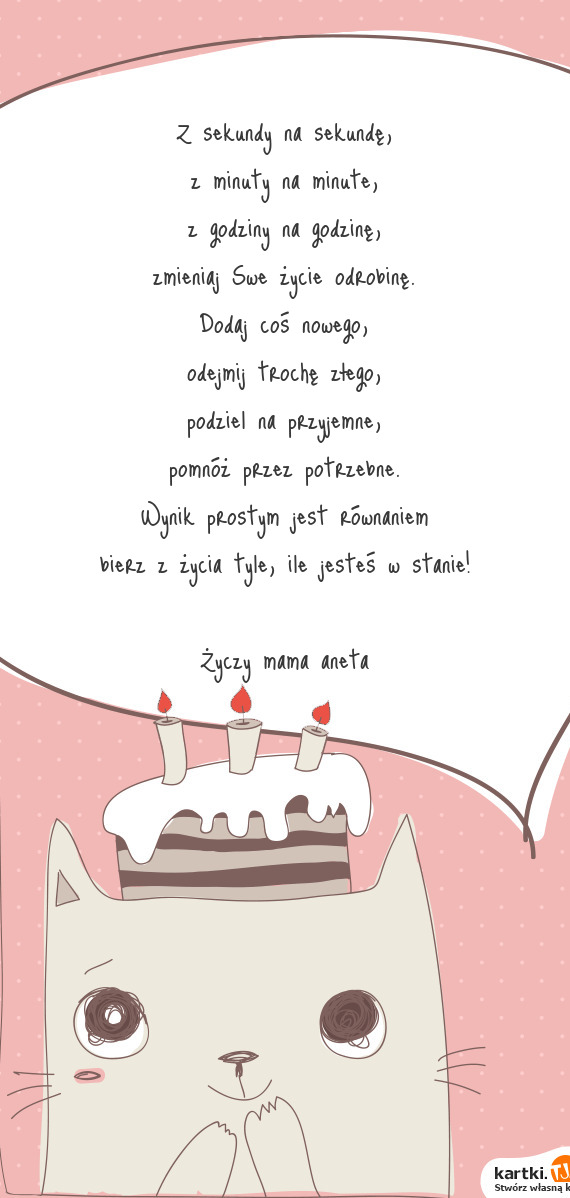 Z sekundy na sekundę,
z minuty na minute,
z godziny na godzinę,
zmieniaj Swe życie odrobinę.
Dodaj coś nowego,
odejmij trochę złego,
podziel na przyjemne,
pomnóż przez potrzebne.
Wynik prostym jest równaniem
bierz z życia tyle, ile jesteś w stanie!
Życzy mama aneta
kartki.TJ
Stwórz własną k